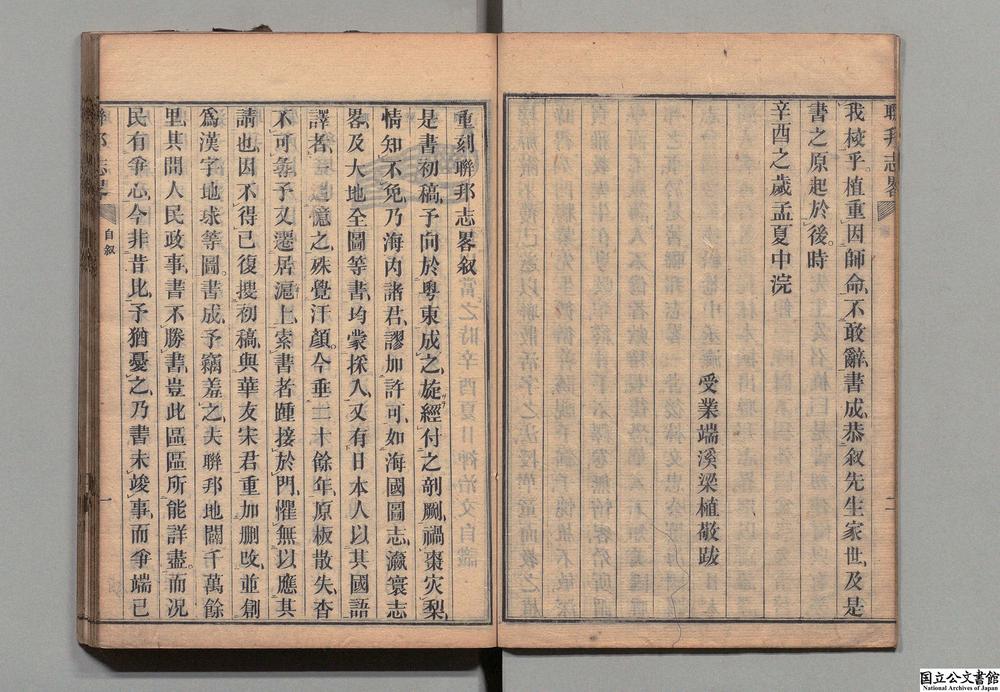 聯邦志畧
二
我梭乎植重因師命不敢辭書成恭叙先生家世及是
書之原起於後時
辛酉之歲孟夏中浣
受業端溪梁植敬跋
重刻聯邦志畧叙
是書初稿予向於粵東成之旋經付之剞劂禍棗灾梨
情知不免乃海內諸君謬加許可如海國圖志瀛寰志
畧及大地全圖等書均蒙採入又有日本人以其國語
譯者追憶之殊覺汗顔今垂二十餘年原板散失杳
不可尋予又遷居滬上索書者踵接於門懼無以應其
請也因不得已復搜初稿與華友宋君重加刪改並創
為漢字地球等圖書成予竊羞之夫聯邦地闊千萬餘
里其間人民政事書不勝書豈此區區所能詳盡而况
民有爭心今非昔比予猶憂之乃書未竣事而爭端已
聯邦志畧
自叙
一
国立公文書館
National Archives of Japan